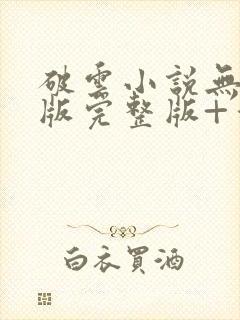 破雲小説無
版完整版+
白衣買酒